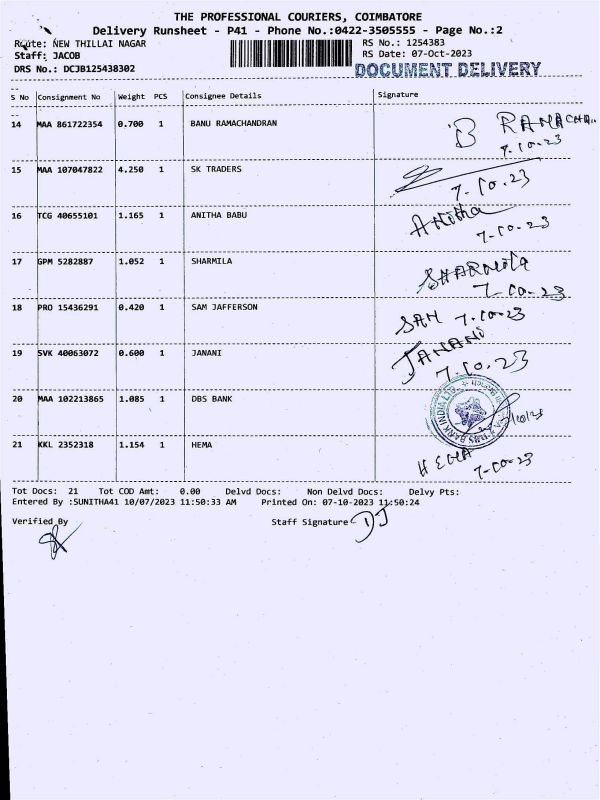 THE PROFESSIONAL COURIERS, COIMBATORE
Delivery Runsheet - P41 - Phone No.:0422-3505555 - Page No.:2
Route: NEW THILLAI NAGAR
RS No.: 1254383
Staff: JACOB
RS Date: 07-Oct-2023
DRS No.: DCJB125438302
DOCUMENT DELIVERY
S No Consignment No Weight PCS Consignee Details Signature
14 MAA 861722354 0.700 1 BANU RAMACHANDRAN B RAMACHA
7.10.23
15 MAA 107047822 4.250 1 SK TRADERS
7.10.23
16 TCG 40655101 1.165 1 ANITHA BABU Anitha
7-10-23
17 GPM 5282887 1.052 1 SHARMILA SHARMILA
7-10-23
18 PRO 15436291 0.420 1 SAM JAFFERSON SAM 7.10.23
19 SVK 40063072 0.600 1 JANANI JANANI
7.10.23
20 MAA 102213865 1.085 1 DBS BANK DBS BANK INDIA LTD.
21 KKL 2352318 1.154 1 HEMA HEMA
7-10-23
Tot Docs: 21 Tot COD Amt: 0.00 Delvd Docs: Non Delvd Docs: Delvy Pts:
Entered By :SUNITHA41 10/07/2023 11:50:33 AM Printed On: 07-10-2023 11:50:24
Verified By Staff Signature DJ